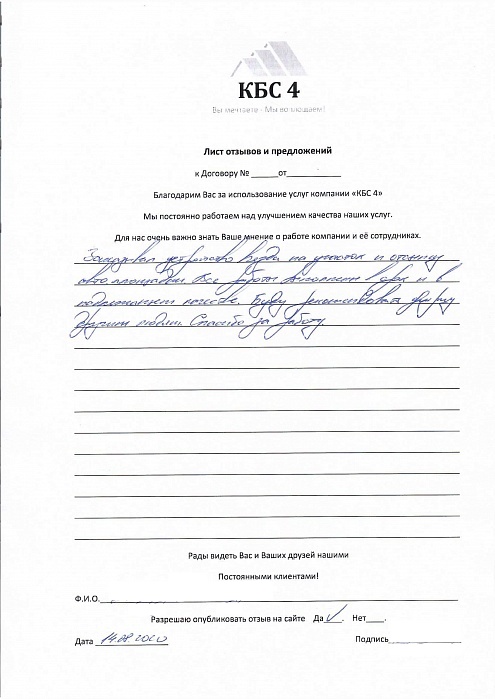 КБС 4
Вы мечтаете - Мы воплощаем!
Лист отзывов и предложений
к Договору № ______от____________
Благодарим Вас за использование услуг компании «КБС 4»
Мы постоянно работаем над улучшением качества наших услуг.
Для нас очень важно знать Ваше мнение о работе компании и её сотрудниках.
Заказывал устройство въезда на участок и стоянку
автоплощадки. Все работы выполнены в срок и в
надлежащем качестве. Буду рекомендовать фирму
другим людям. Спасибо за работу.
Рады видеть Вас и Ваших друзей нашими
Постоянными клиентами!
Ф.И.О.
Разрешаю опубликовать отзыв на сайте Да V. Нет____.
Дата 14.08.2020 Подпись